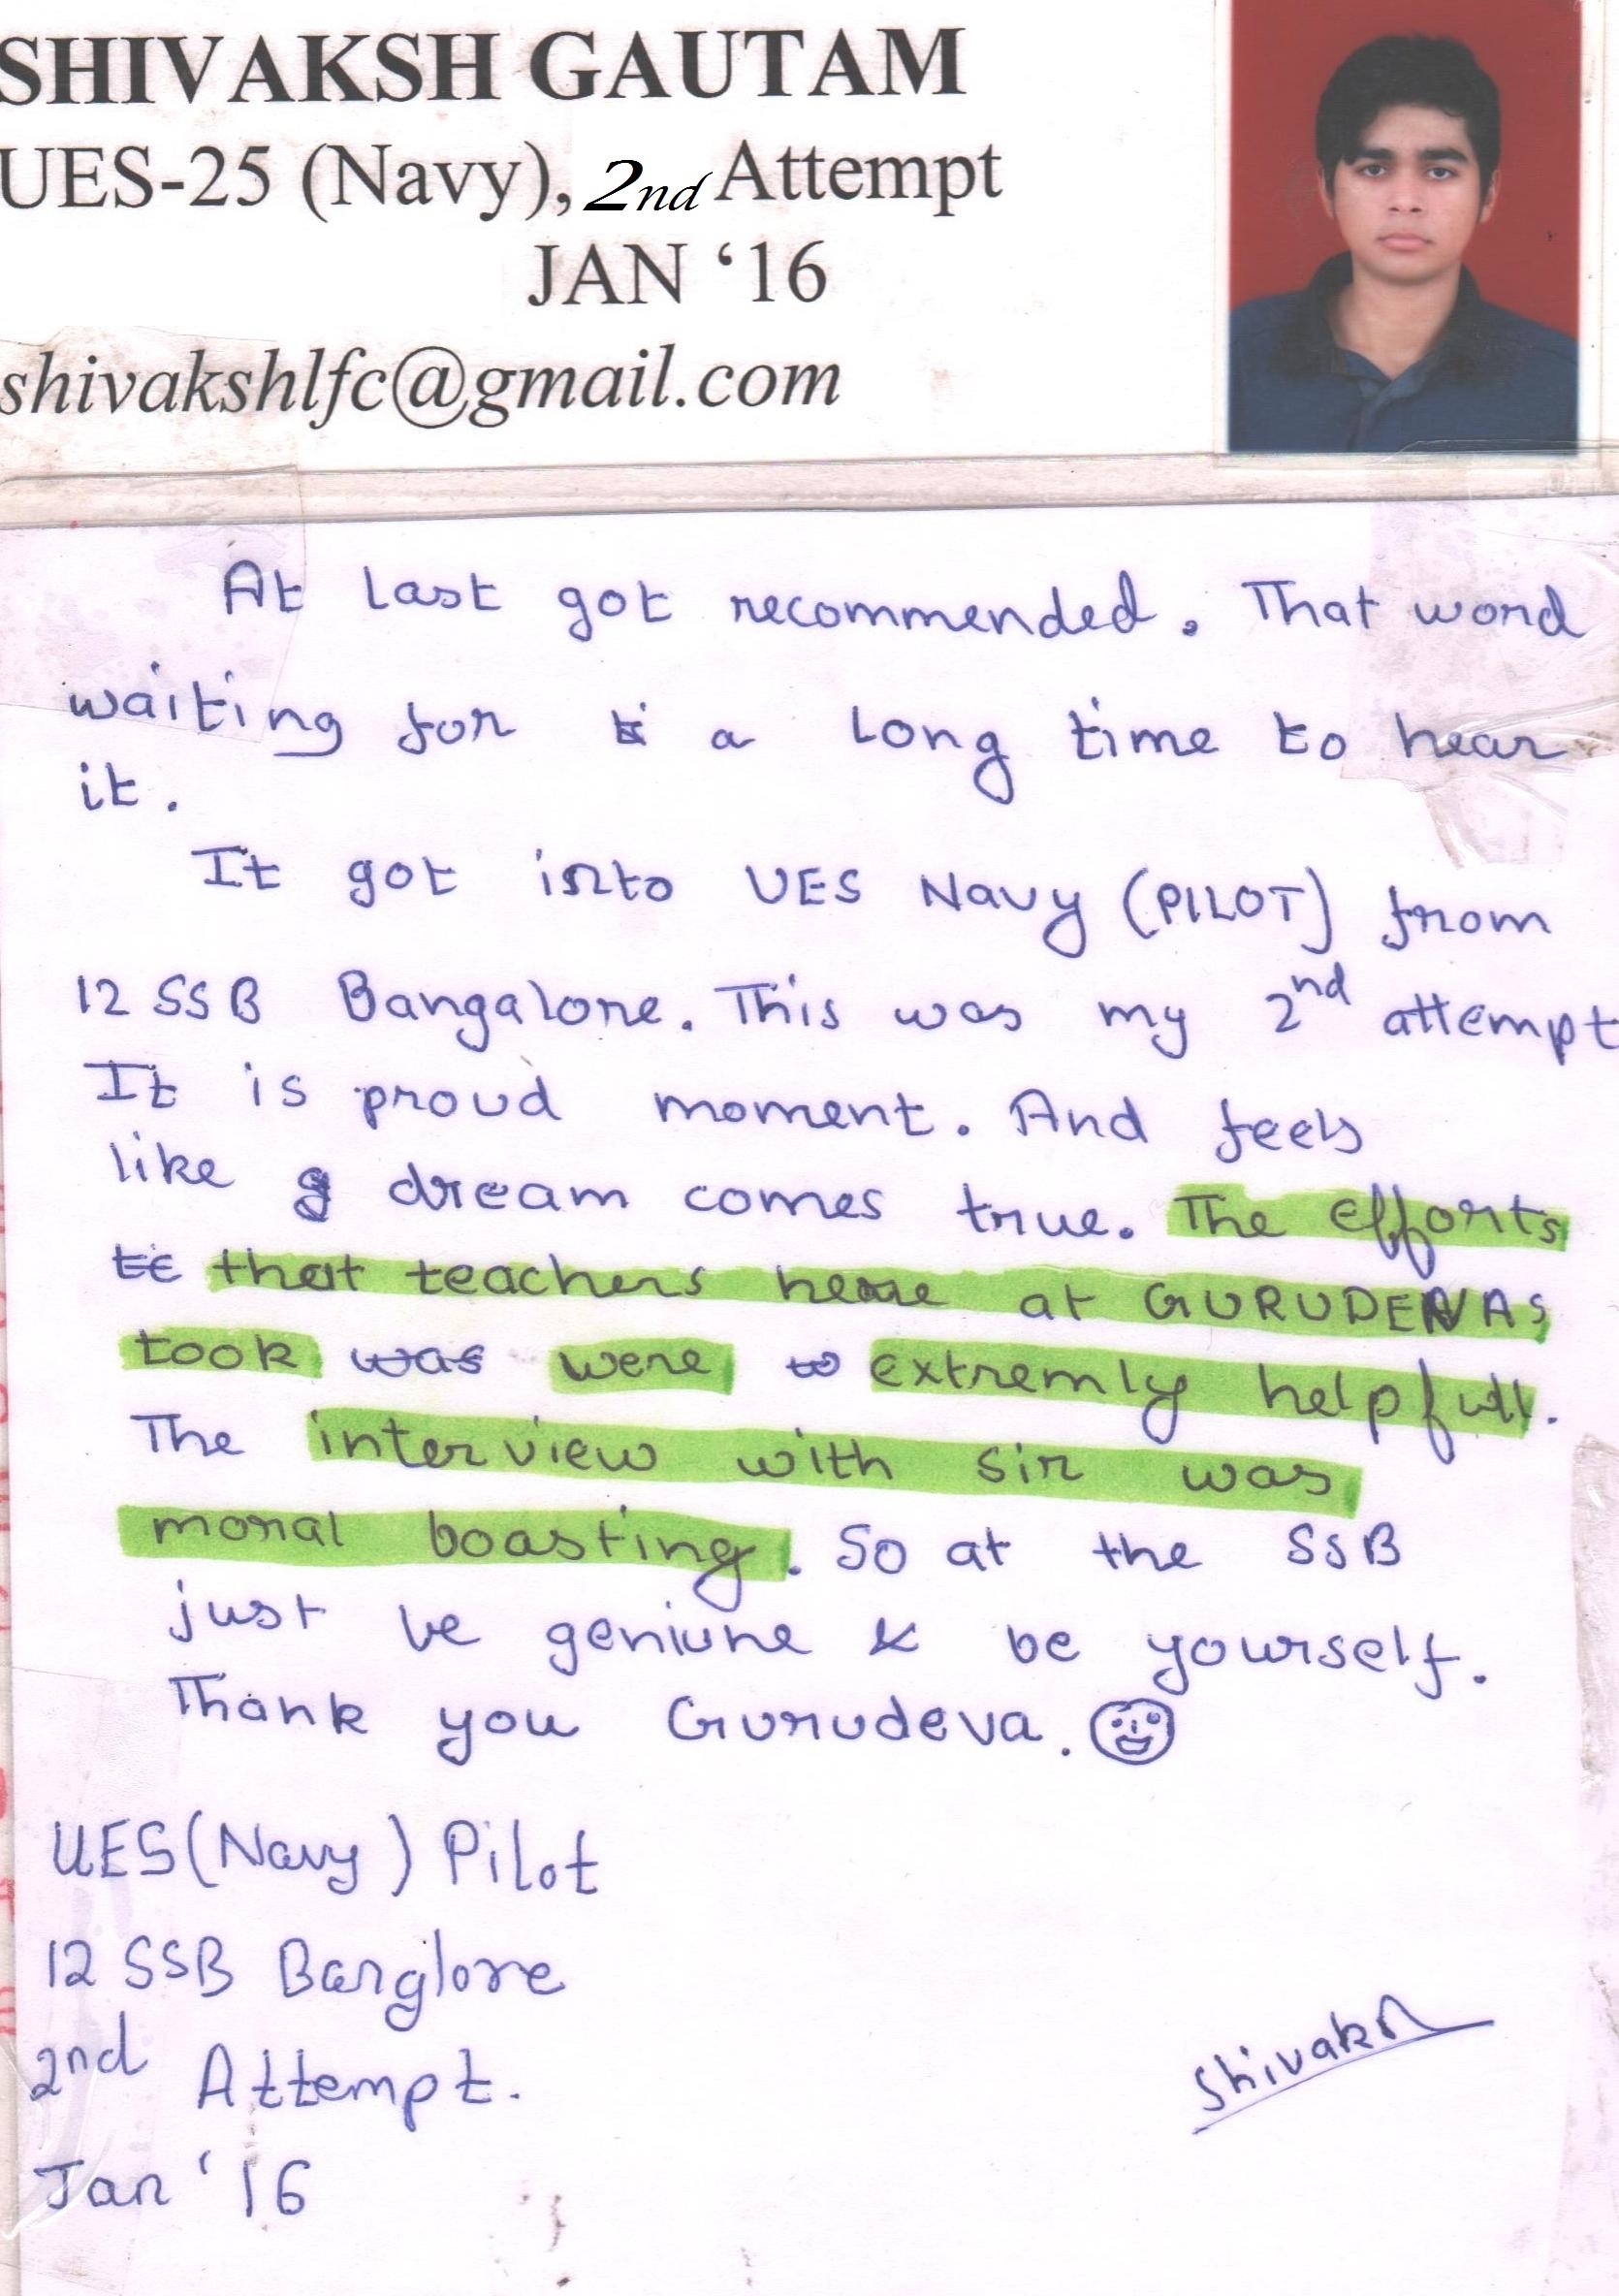 SHIVAKSH GAUTAM
UES-25 (Navy), 2nd Attempt
JAN ‘16
shivakshlfc@gmail.com
At last got recommended. That word
waiting for a long time to hear
it.
It got into UES Navy (PILOT) from
12 SSB Bangalore. This was my 2nd attempt
It is proud moment. And feels
like a dream comes true. The efforts
that teachers here at GURUDEVAS
took was were to extremly helpfull.
The interview with sir was
moral boasting. So at the SSB
just be geniune & be yourself.
Thank you Gurudeva.
UES (Navy) Pilot
12 SSB Banglore
2nd Attempt.
Jan ‘16
Shivaksh